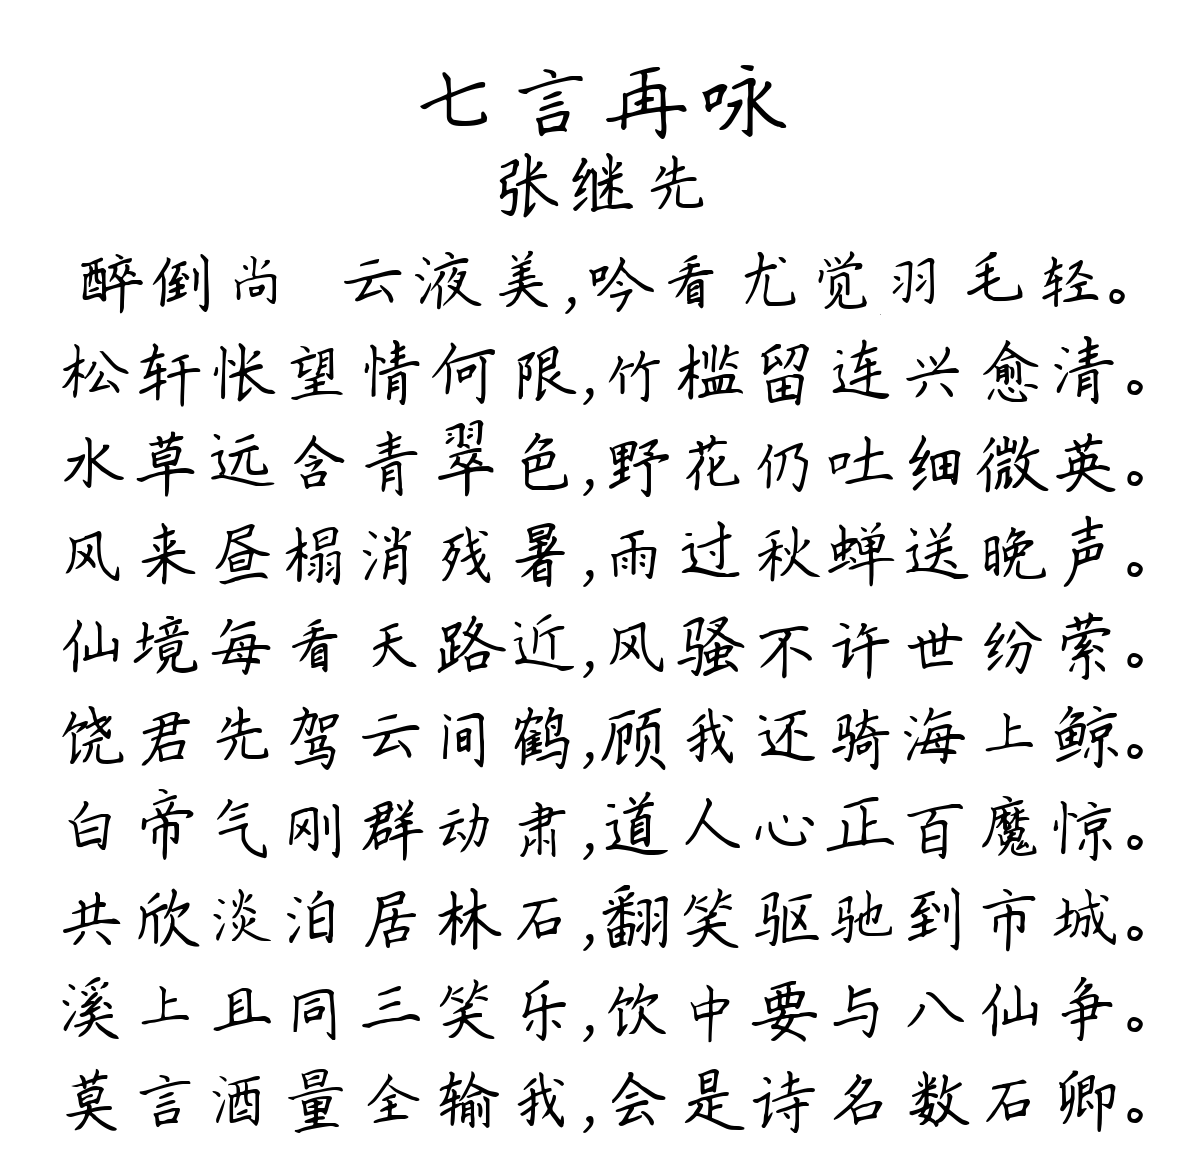 七言再咏
张继先
醉倒尚 云液美,吟看尤觉羽毛轻。
松轩怅望情何限,竹槛留连兴愈清。
水草远含青翠色,野花仍吐细微英。
风来昼榻消残暑,雨过秋蝉送晚声。
仙境每看天路近,风骚不许世纷萦。
饶君先驾云间鹤,顾我还骑海上鲸。
白帝气刚群动肃,道人心正百魔惊。
共欣淡泊居林石,翻笑驱驰到市城。
溪上且同三笑乐,饮中要与八仙争。
莫言酒量全输我,会是诗名数石卿。